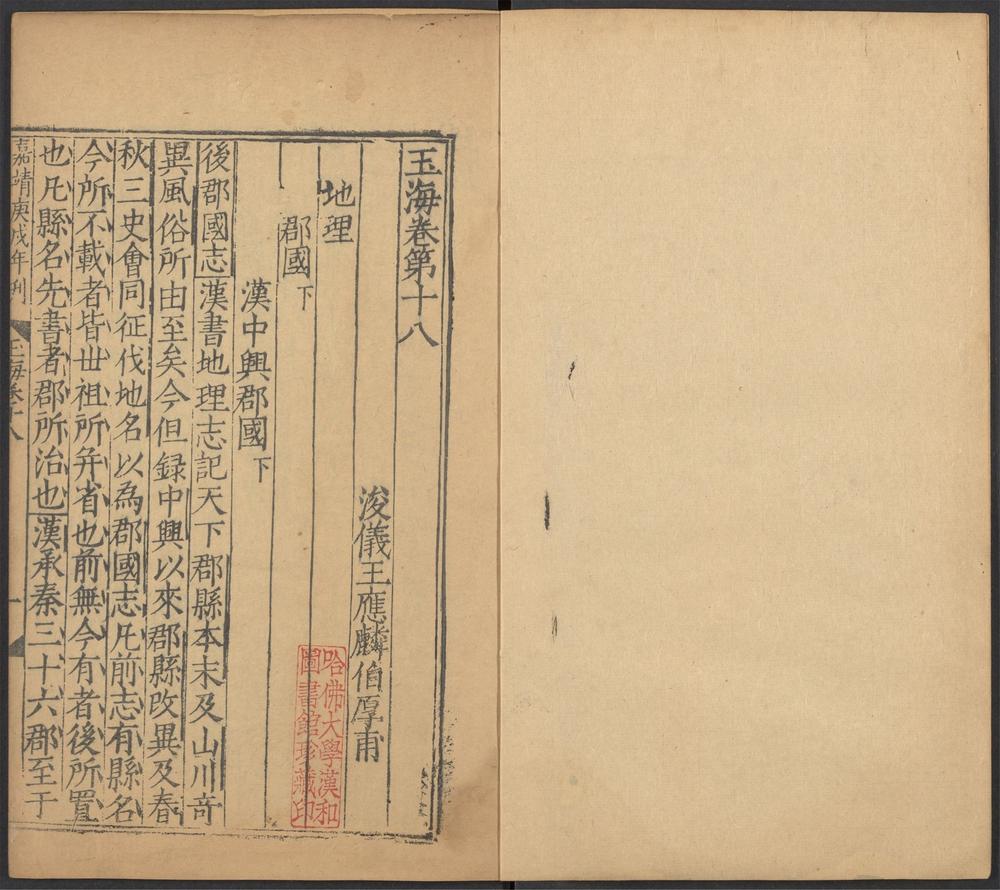 玉海卷第十八
浚儀王應麟伯厚甫
地理
郡國下
漢中興郡國下
後郡國志漢書地理志記天下郡縣本末及山川竒
異風俗所由至矣今但録中興以來郡縣改異及春
秋三史會同征伐地名以為郡國志凡前志有縣名
今所不載者皆世祖所并省也前無今有者後所置
也凡縣名先書者郡所治也漢承秦三十六郡至于
嘉靖庚戌年刋
玉海卷十八
一
哈佛大學漢和
圖書館珍藏印